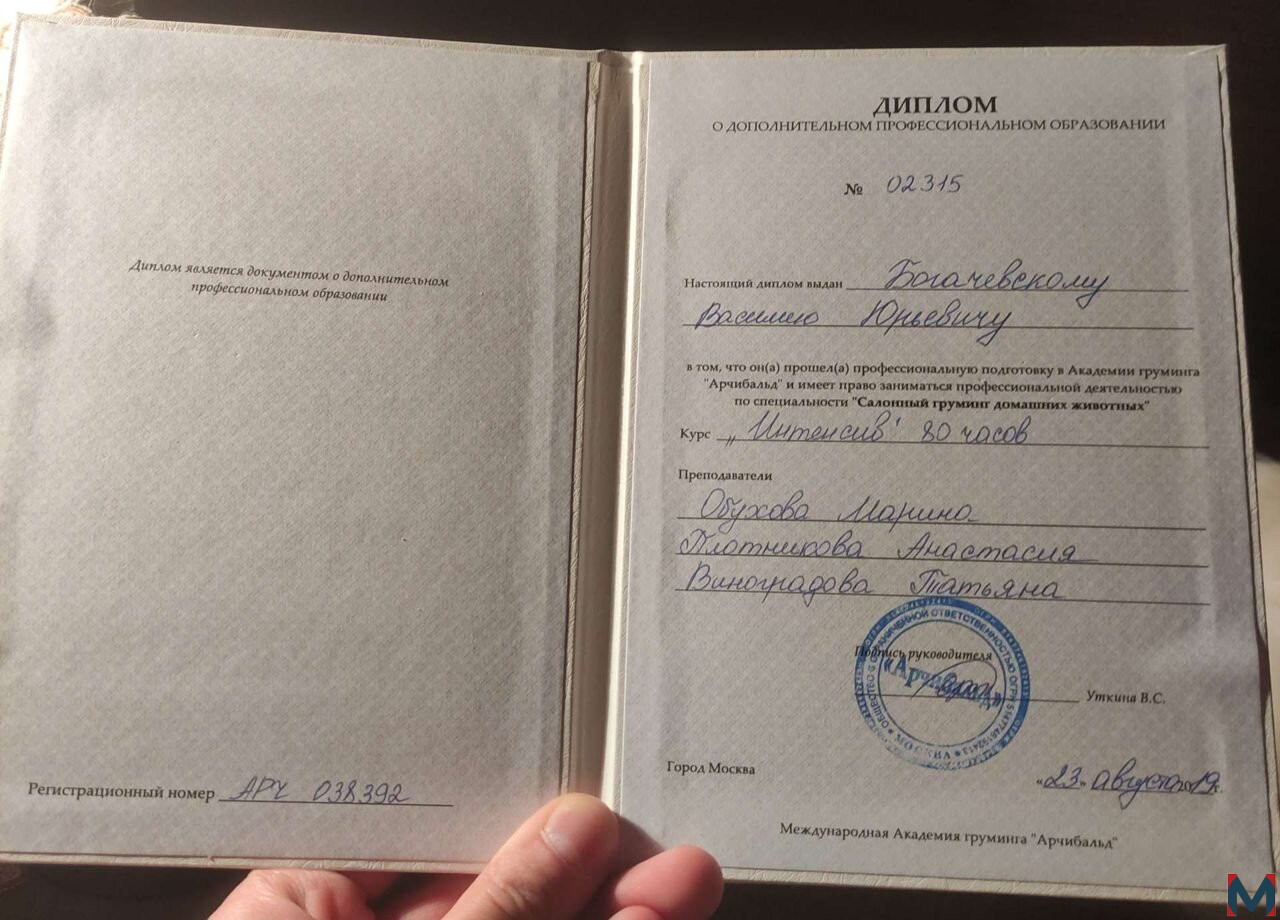 Диплом является документом о дополнительном
профессиональном образовании
Регистрационный номер АРЧ 038392
ДИПЛОМ
О ДОПОЛНИТЕЛЬНОМ ПРОФЕССИОНАЛЬНОМ ОБРАЗОВАНИИ
№ 02315
Настоящий диплом выдан Богачевскому
Василию Юрьевичу
в том, что он(а) прошел(а) профессиональную подготовку в Академии груминга
"Арчибальд" и имеет право заниматься профессиональной деятельностью
по специальности "Салонный груминг домашних животных"
Курс „Интенсив" 80 часов
Преподаватели
Обухова Марина
Плотникова Анастасия
Виноградова Татьяна
Подпись руководителя
«Арчибальд»
ОБЩЕСТВО С ОГРАНИЧЕННОЙ ОТВЕТСТВЕННОСТЬЮ ОГРН
МОСКВА
Уткина В.С.
Город Москва
«23» августа 2019г.
Международная Академия груминга "Арчибальд"
M